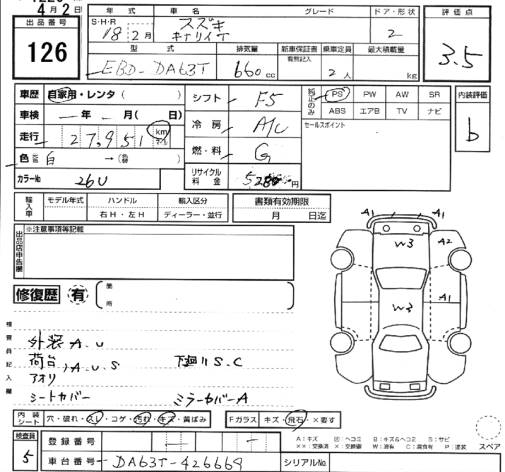 4月2日
出品番号 126
年式 車名 グレード ドア・形状 評価点
S・H・R 18年2月 スズキ 2 3.5
型式 排気量 新車保証書 乗車定員 最大積載量
EBD-DA63T 660cc 有無記入 2人 kg
車歴 自家用・レンタ( ) シフト F5 純正のみ PS PW AW SR 内装評価
車検 ー年ー月( 日) 冷房 A/C ABS エアB TV ナビ b
走行 27,951 km マイル 燃・料 G セールスポイント
色 白 →( )
カラーNo 26U リサイクル料金 円
輸入車 モデル年式 ハンドル 輸入区分 書類有効期限
右H・左H ディーラー・並行 月 日迄
出品店申告欄 ※注意事項等記載
A1 A1
W3 A2
W3 A1
修復歴 有 箇所
検査員記入欄
外装A.U
荷台,A.U.S 下廻りS.C
アオリ
シートカバー ミラーカバーA
内装シート 穴・破れ・スレ・コゲ・汚れ・キズ・黄ばみ Fガラス キズ・飛石・×要す
検査員 5 登録番号 ー ー A:キズ U:ヘコミ B:キズ&ヘコミ S:サビ
××:交換済 ×:交換要 W:波有 C:腐食有 P:塗装 スペア
車台番号 DA63T-426669 シリアルNo.